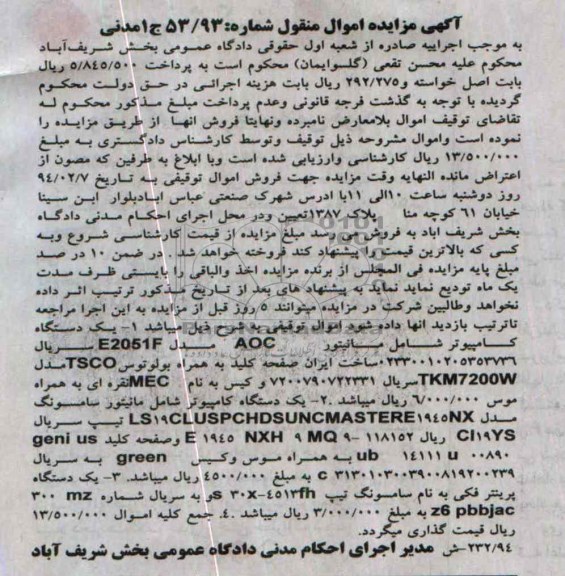 آگهی مزایده اموال منقول شماره: ۵۳/۹۳ ج۱مدنی
به موجب اجراییه صادره از شعبه اول حقوقی دادگاه عمومی بخش شریف‌آباد
محکوم علیه محسن تقعی (گلوایمان) محکوم است به پرداخت ۵/۸۴۵/۵۰۰ ریال
بابت اصل خواسته و۲۹۲/۲۷۵ ریال بابت هزینه اجرائی در حق دولت محکوم
گردیده با توجه به گذشت فرجه قانونی وعدم پرداخت مبلغ مذکور محکوم له
تقاضای توقیف اموال بلامعارض نامبرده ونهایتا فروش انها از طریق مزایده را
نموده است واموال مشروحه ذیل توقیف وتوسط کارشناس دادگستری به مبلغ
۱۳/۵۰۰/۰۰۰ ریال کارشناسی وارزیابی شده است وبا ابلاغ به طرفین که مصون از
اعتراض مانده النهایه وقت مزایده جهت فروش اموال توقیفی به تاریخ ۹۴/۰۲/۷
روز دوشنبه ساعت ۱۰الی ۱۱با ادرس شهرک صنعتی عباس ابادبلوار ابن سینا
خیابان ۶۱ کوچه منا پلاک ۱۳۸۷تعیین ودر محل اجرای احکام مدنی دادگاه
بخش شریف اباد به فروش می رسد مبلغ مزایده از قیمت کارشناسی شروع وبه
کسی که بالاترین قیمت را پیشنهاد کند فروخته خواهد شد . در ضمن ۱۰ در صد
مبلغ پایه مزایده فی المجلس از برنده مزایده اخذ والباقی را بایستی ظرف مدت
یک ماه تودیع نماید نماید به پیشنهاد های بعد از تاریخ مذکور ترتیب اثر داده
نخواهد وطالبین شرکت در مزایده میتوانند ۵ روز قبل از مزایده به این اجرا مراجعه
تاترتیب بازدید انها داده شود اموال توقیفی به شرح ذیل میباشد ۱- یک دستگاه
کامپیوتر شامل مانیتور AOC مدل E2051F سریال
۰۲۳۳۰۰۱۰۲۰۵۳۵۳۷۳۶ساخت ایران صفحه کلید به همراه بولوتوسTSCOمدل
TKM7200Wسریال ۷۲۰۰۷۹۰۷۲۲۳۳۱ و کیس به نام MECنقره ای به همراه
موس ۶/۰۰۰/۰۰۰ ریال میباشد .۲- یک دستگاه کامپیوتر شامل مانیتور سامسونگ
مدل LS۱۹CLUSPCHDSUNCMASTERE۱۹۴۵NX تیپ سریال
CI۱۹YS ریال ۱۱۸۱۵۲ -۹ E ۱۹۴۵ NXH ۹ MQ وصفحه کلید geni us
۰۰۸۹۰ ub ۱۴۱۱۱ u به همراه موس وکیس green به سریال
c ۳۱۳۰۱۰۳۰۰۳۹۰۰۸۱۹۲۰۰۲۳۹ به مبلغ ۴۵۰۰/۰۰۰ ریال میباشد. ۳- یک دستگاه
پرینتر فکی به نام سامسونگ تیپ s ۳۰x-۴۵۱۳fhو به سریال شماره ۳۰۰ mz
z6 pbbjac به مبلغ ۳/۰۰۰/۰۰۰ ریال میباشد .۴. جمع کلیه اموال ۱۳/۵۰۰/۰۰۰
ریال قیمت گذاری میگردد.
۲۳۲/۹۴-ش مدیر اجرای احکام مدنی دادگاه عمومی بخش شریف آباد